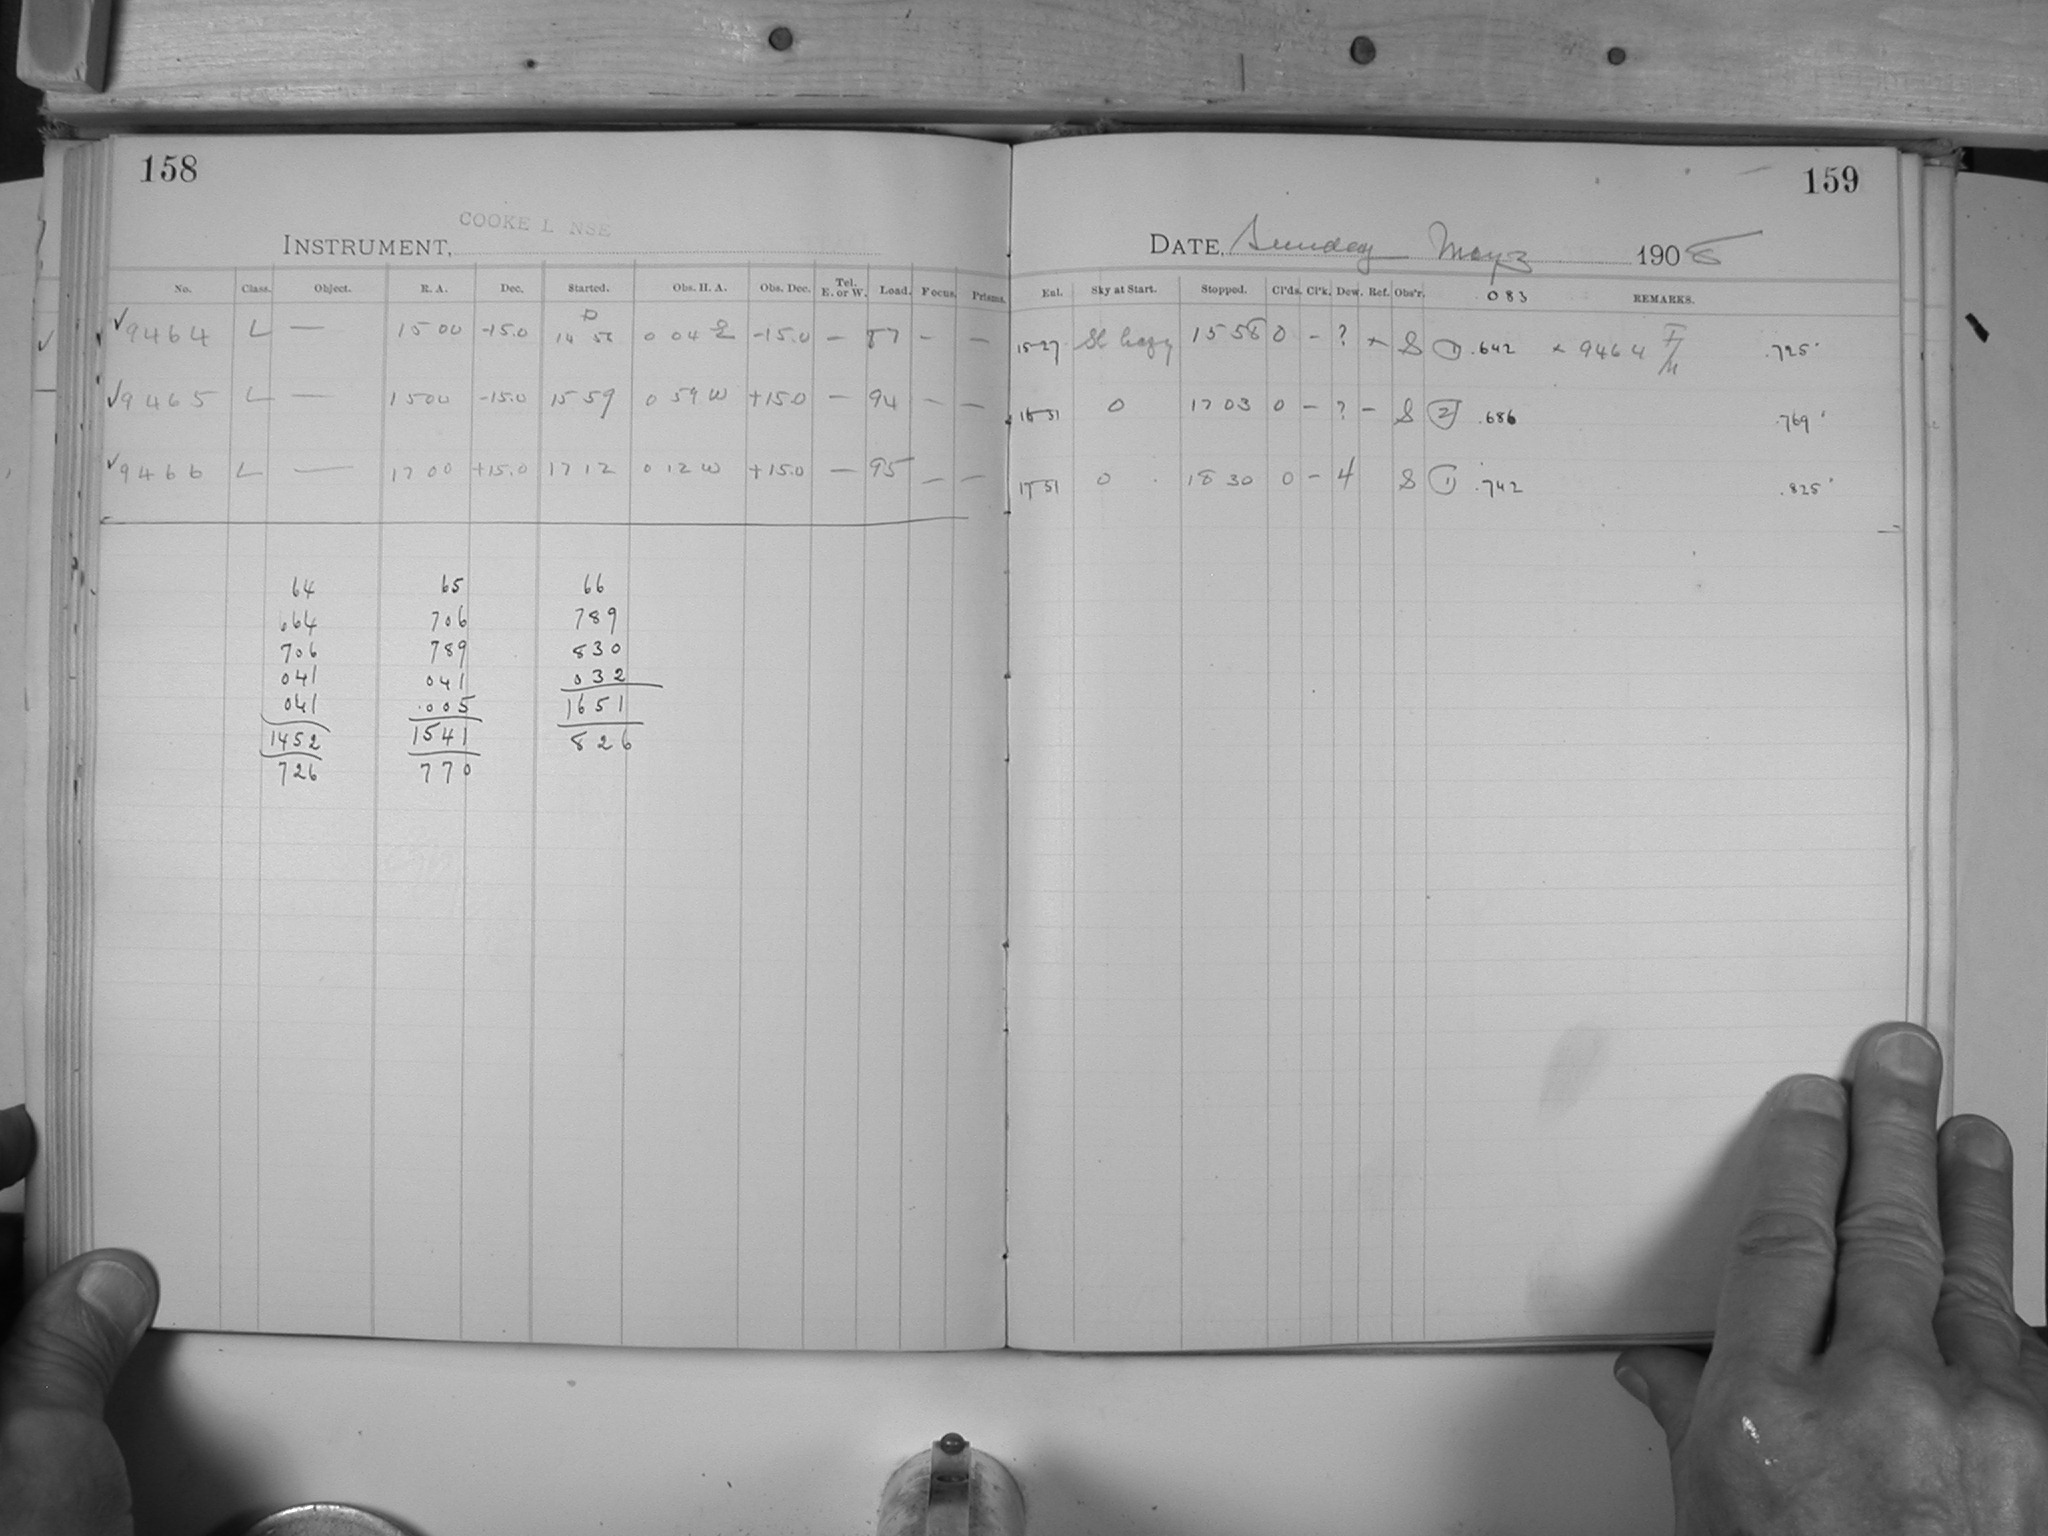 158
COOKE L NSE
INSTRUMENT,
No. Class. Object. R. A. Dec. Started. Obs. H. A. Obs. Dec. Tel. E. or W. Load. Focus. Prisms.
✓9464 L — 15 00 -15.0 14 56 0 04 E -15.0 — 87 - —
✓9465 L — 15 00 -15.0 15 59 0 59 W +15.0 — 94 — —
✓9466 L — 17 00 +15.0 17 12 0 12 W +15.0 — 95 — —
64 65 66
664 706 789
706 789 830
041 041 032
041 .005 1651
1452 1541 826
726 770
159
DATE, Sunday May 3 1908
Exl. Sky at Start. Stopped. Cl'ds. Cl'k. Dew. Ref. Obs'r. .083 REMARKS.
15 27 Sl hazy 15 58 0 - ? × S ① .642 × 9464 F/M .725
16 31 0 17 03 0 - ? - S ② .686 .769
17 51 0 18 30 0 - 4 S ① .742 .825